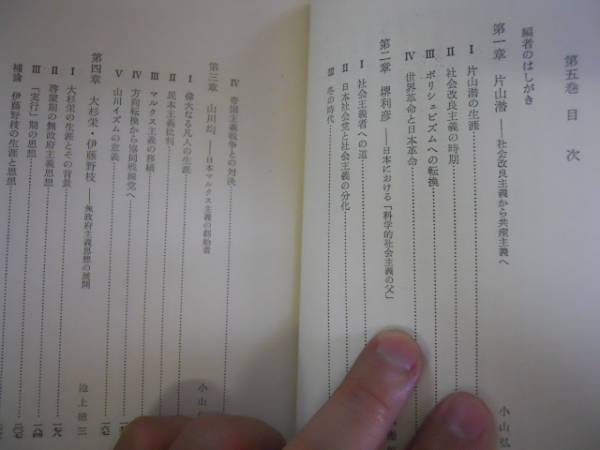 第五巻 目次
編者のはしがき
第一章 片山潜——社会改良主義から共産主義へ 小山弘
Ⅰ 片山潜の生涯
Ⅱ 社会改良主義の時期
Ⅲ ボリシェビズムへの転換
Ⅳ 世界革命と日本革命
第二章 堺利彦——日本における「科学的社会主義の父」
Ⅰ 社会主義者への道
Ⅱ 日本社会党と社会主義の分化
Ⅲ 冬の時代
Ⅳ 帝国主義戦争との対決
第三章 山川均——日本マルクス主義の創始者 小山
Ⅰ 偉大なる凡人の生涯
Ⅱ 民本主義批判
Ⅲ マルクス主義の移植
Ⅳ 方向転換から協同戦線党へ
Ⅴ 山川イズムの意義
第四章 大杉栄・伊藤野枝——無政府主義思想の展開 池上
Ⅰ 大杉栄の生涯とその背景
Ⅱ 啓蒙期の無政府主義思想
Ⅲ 「実行」期の思想
補論 伊藤野枝の生涯と思想